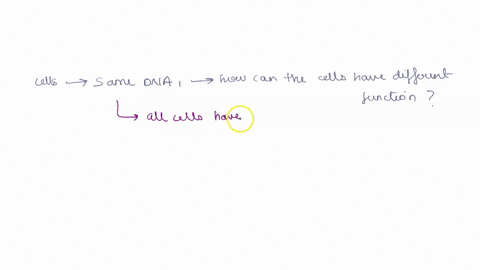 cells → Same DNA, → how can the cells have different
function?
↳ all cells have